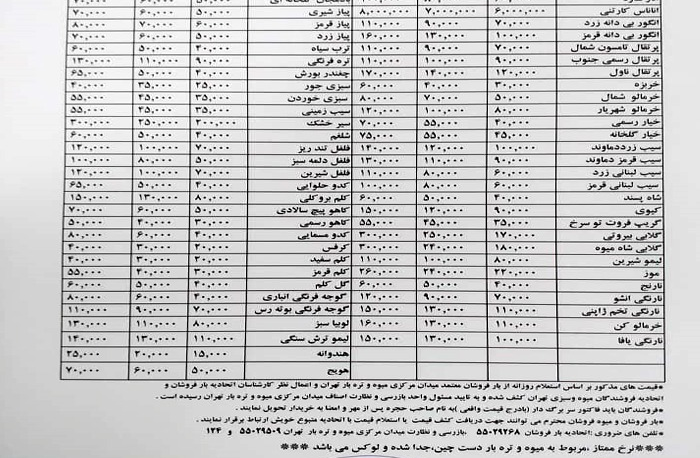 آناناس کارتنی ۶,۰۰۰,۰۰۰ ۷,۰۰۰,۰۰۰ ۸,۰۰۰,۰۰۰ پیاز شیری ۵۰,۰۰۰ ۶۰,۰۰۰ ۷۰,۰۰۰
انگور بی دانه زرد ۷۰,۰۰۰ ۹۰,۰۰۰ ۱۱۰,۰۰۰ پیاز قرمز ۶۰,۰۰۰ ۷۰,۰۰۰ ۸۰,۰۰۰
انگور بی دانه قرمز ۱۰۰,۰۰۰ ۱۳۰,۰۰۰ ۱۶۰,۰۰۰ پیاز زرد ۵۰,۰۰۰ ۶۰,۰۰۰ ۷۰,۰۰۰
پرتقال تامسون شمال ۷۰,۰۰۰ ۹۰,۰۰۰ ۱۱۰,۰۰۰ ترب سیاه ۴۰,۰۰۰ ۵۰,۰۰۰ ۶۰,۰۰۰
پرتقال رسمی جنوب ۹۰,۰۰۰ ۱۰۰,۰۰۰ ۱۱۰,۰۰۰ تره فرنگی ۹۰,۰۰۰ ۱۱۰,۰۰۰ ۱۳۰,۰۰۰
پرتقال ناول ۱۲۰,۰۰۰ ۱۴۰,۰۰۰ ۱۷۰,۰۰۰ چغندر بورش ۴۰,۰۰۰ ۵۰,۰۰۰ ۶۵,۰۰۰
خربزه ۳۰,۰۰۰ ۴۰,۰۰۰ ۶۰,۰۰۰ سبزی جور ۲۵,۰۰۰ ۳۵,۰۰۰ ۴۰,۰۰۰
خرمالو شمال ۵۰,۰۰۰ ۷۰,۰۰۰ ۸۰,۰۰۰ سبزی خوردن ۳۵,۰۰۰ ۴۵,۰۰۰ ۵۵,۰۰۰
خرمالو شهریار ۸۰,۰۰۰ ۱۰۰,۰۰۰ ۱۲۰,۰۰۰ سیب زمینی ۳۵,۰۰۰ ۴۵,۰۰۰ ۵۵,۰۰۰
خیار رسمی ۴۰,۰۰۰ ۵۵,۰۰۰ ۷۰,۰۰۰ سیر خشک ۲۰۰,۰۰۰ ۲۵۰,۰۰۰ ۳۰۰,۰۰۰
خیار گلخانه ۴۵,۰۰۰ ۵۵,۰۰۰ ۷۵,۰۰۰ شلغم ۴۰,۰۰۰ ۵۰,۰۰۰ ۶۰,۰۰۰
سیب زرددماوند ۱۰۰,۰۰۰ ۱۲۰,۰۰۰ ۱۴۰,۰۰۰ فلفل تند ریز ۷۰,۰۰۰ ۱۰۰,۰۰۰ ۱۲۰,۰۰۰
سیب قرمز دماوند ۹۰,۰۰۰ ۱۱۰,۰۰۰ ۱۳۰,۰۰۰ فلفل دلمه سبز ۵۰,۰۰۰ ۸۰,۰۰۰ ۱۰۰,۰۰۰
سیب لبنانی زرد ۶۰,۰۰۰ ۸۰,۰۰۰ ۱۱۰,۰۰۰ فلفل شیرین ۷۰,۰۰۰ ۱۰۰,۰۰۰ ۱۲۰,۰۰۰
سیب لبنانی قرمز ۶۰,۰۰۰ ۸۰,۰۰۰ ۱۰۰,۰۰۰ کدو حلوایی ۴۰,۰۰۰ ۵۰,۰۰۰ ۶۵,۰۰۰
شاه پسند ۴۰,۰۰۰ ۶۰,۰۰۰ ۸۰,۰۰۰ کلم بروکلی ۸۰,۰۰۰ ۱۳۰,۰۰۰ ۱۵۰,۰۰۰
کیوی ۹۰,۰۰۰ ۱۲۰,۰۰۰ ۱۵۰,۰۰۰ کاهو پیچ سالادی ۵۰,۰۰۰ ۶۰,۰۰۰ ۷۰,۰۰۰
گریپ فروت تو سرخ ۳۵,۰۰۰ ۴۵,۰۰۰ ۵۵,۰۰۰ کاهو رسمی ۳۰,۰۰۰ ۴۰,۰۰۰ ۵۰,۰۰۰
گلابی بیروتی ۱۷۰,۰۰۰ ۲۵۰,۰۰۰ ۳۰۰,۰۰۰ کدو مسمایی ۴۰,۰۰۰ ۶۰,۰۰۰ ۸۰,۰۰۰
گلابی شاه میوه ۱۸۰,۰۰۰ ۲۴۰,۰۰۰ ۳۰۰,۰۰۰ کرفس ۲۰,۰۰۰ ۳۰,۰۰۰ ۴۰,۰۰۰
لیمو شیرین ۸۰,۰۰۰ ۱۰۰,۰۰۰ ۱۱۰,۰۰۰ کلم سفید ۲۰,۰۰۰ ۳۰,۰۰۰ ۴۰,۰۰۰
موز ۲۲۰,۰۰۰ ۲۴۰,۰۰۰ ۲۶۰,۰۰۰ کلم قرمز ۳۰,۰۰۰ ۴۰,۰۰۰ ۵۵,۰۰۰
نارنج ۴۰,۰۰۰ ۵۰,۰۰۰ ۶۰,۰۰۰ گل کلم ۴۰,۰۰۰ ۵۰,۰۰۰ ۶۰,۰۰۰
نارنگی انشو ۷۰,۰۰۰ ۹۰,۰۰۰ ۱۲۰,۰۰۰ گوجه فرنگی انباری ۴۰,۰۰۰ ۶۰,۰۰۰ ۸۰,۰۰۰
نارنگی تخم ژاپنی ۱۱۰,۰۰۰ ۱۳۰,۰۰۰ ۱۵۰,۰۰۰ گوجه فرنگی بوته رس ۷۰,۰۰۰ ۹۰,۰۰۰ ۱۱۰,۰۰۰
خرمالو کن ۱۱۰,۰۰۰ ۱۳۰,۰۰۰ ۱۶۰,۰۰۰ لوبیا سبز ۸۰,۰۰۰ ۱۱۰,۰۰۰ ۱۳۰,۰۰۰
نارنگی یافا ۱۰۰,۰۰۰ ۱۳۰,۰۰۰ ۱۵۰,۰۰۰ لیمو ترش سنگی ۱۱۰,۰۰۰ ۱۳۰,۰۰۰ ۱۴۰,۰۰۰
هندوانه ۱۵,۰۰۰ ۲۰,۰۰۰ ۲۵,۰۰۰
هویج ۵۰,۰۰۰ ۶۰,۰۰۰ ۷۰,۰۰۰
*قیمت های مذکور بر اساس استعلام روزانه از بار فروشان معتمد میدان مرکزی میوه و تره بار تهران و اعمال نظر کارشناسان اتحادیه بار فروشان و
اتحادیه فروشندگان میوه وسبزی تهران کشف شده و به تایید مسئول واحد بازرسی و نظارت اصناف میدان مرکزی میوه و تره بار تهران رسیده است .
*فروشندگان باید فاکتور سر برگ دار (بادرج قیمت واقعی )به نام صاحب حجره پس از مهر و امضا به خریدار تحویل نمایند .
*بار فروشان و فروشندگان میوه و تره بار فروشان محترم می توانند جهت دریافت کشف قیمت یا استعلام قیمت با اتحادیه متبوع خویش ارتباط برقرار نمایند .
*تلفن های ضروری :اتحادیه بار فروشان ۵۵۰۲۹۲۶۸ ،بازرسی و نظارت میدان مرکزی میوه و تره بار تهران ۵۵۰۲۹۵۰۹ و ۱۲۴
***نرخ ممتاز ،مربوط به میوه و تره بار دست چین،جدا شده و لوکس می باشد ***